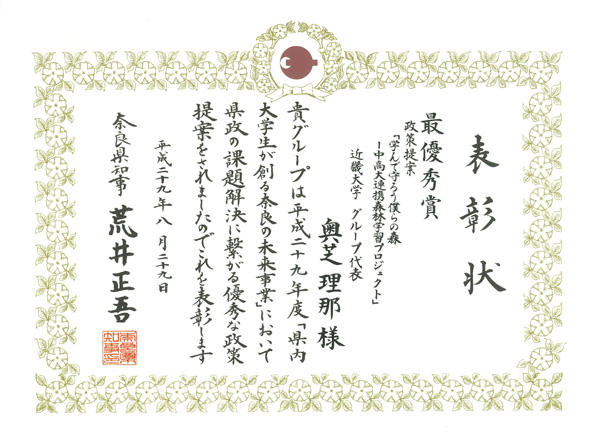 表彰状
最優秀賞
政策提案
「学んで守ろう僕らの森
ー中高大連携森林学習プロジェクト」
近畿大学 グループ代表
奥芝理那様
貴グループは平成二十九年度「県内
大学生が創る奈良の未来事業」において
県政の課題解決に繋がる優秀な政策
提案をされましたのでこれを表彰します
平成二十九年八月二十九日
奈良県知事 荒井正吾